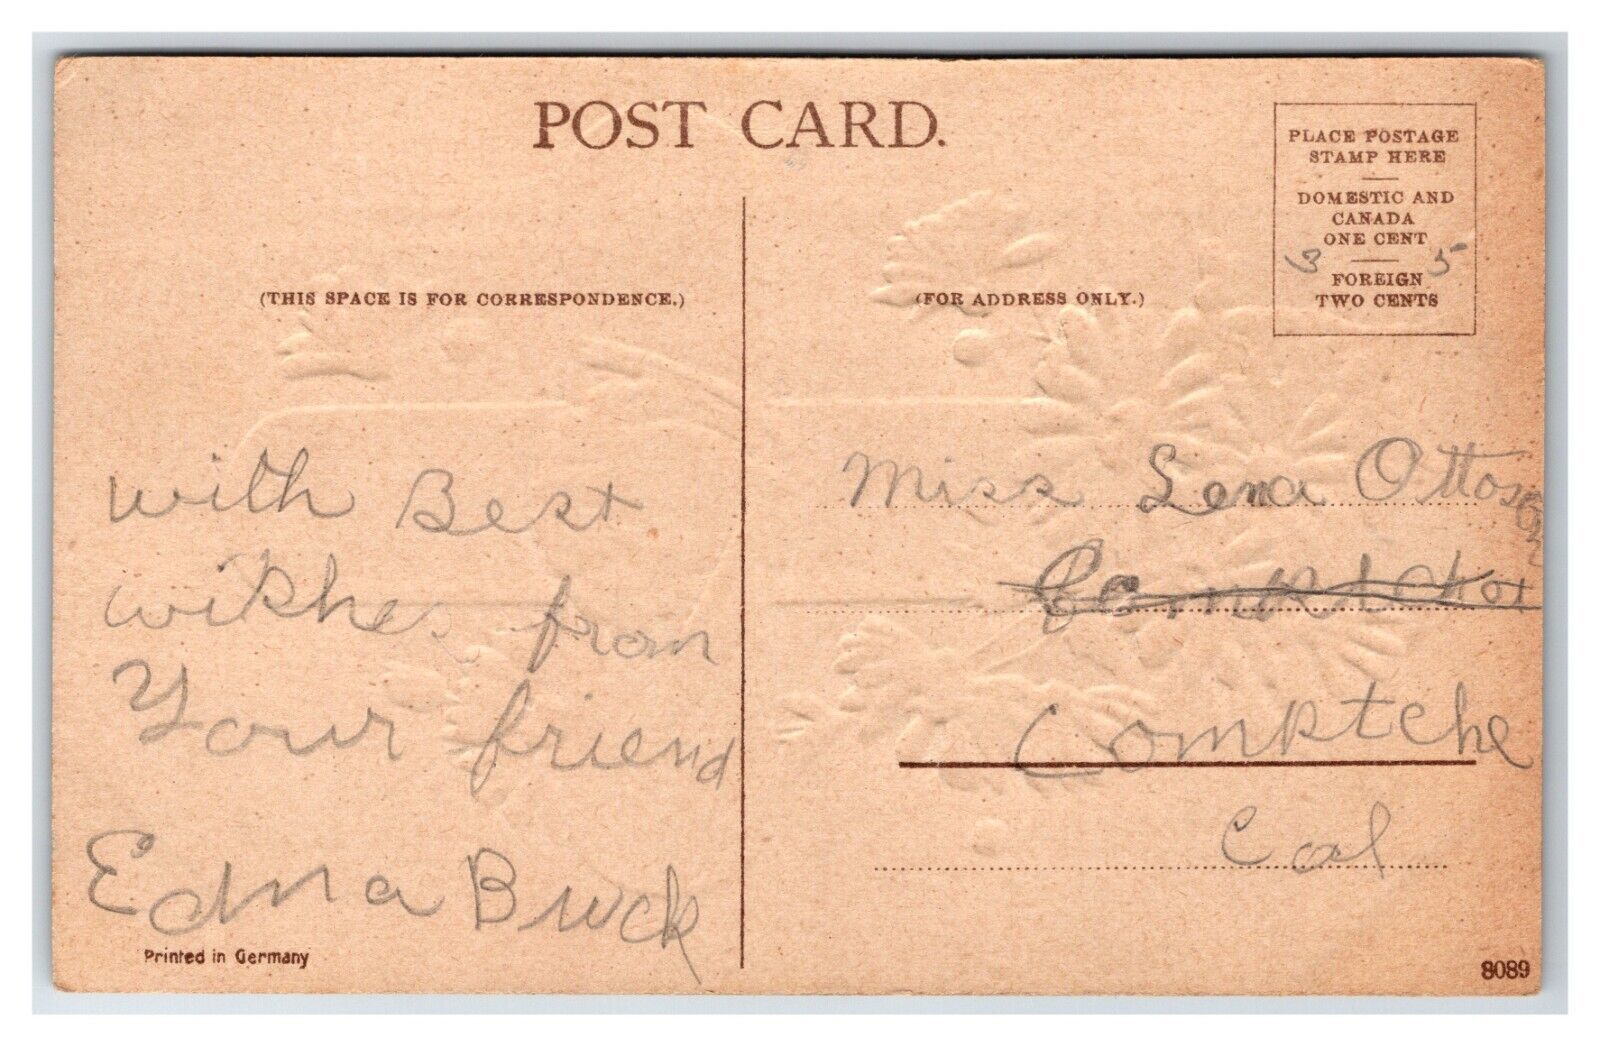 POST CARD.
PLACE POSTAGE
STAMP HERE
DOMESTIC AND
CANADA
ONE CENT
3 5
FOREIGN
TWO CENTS
(THIS SPACE IS FOR CORRESPONDENCE.)
with Best
wishes from
Your friend
Edna Buck
Printed in Germany
(FOR ADDRESS ONLY.)
Miss Lena Ottoson
Comptche
Cal
8089